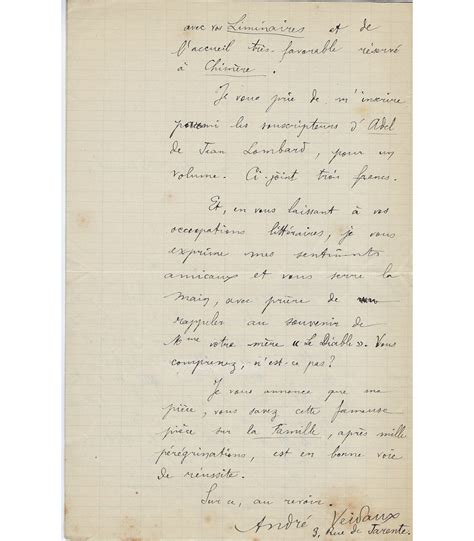 avec vos Liminaires et de
l'accueil très favorable réservé
à Chimère.
Je vous prie de m'inscrire
parmi les souscripteurs d'Adel
de Jean Lombard, pour un
volume. Ci-joint trois francs.
Et, en vous laissant à vos
occupations littéraires, je vous
exprime mes sentiments
amicaux et vous serre la
main, avec prière de me
rappeler au souvenir de
Mme votre mère « Le Diable ». Vous
comprenez, n'est-ce pas?
Je vous annonce que ma
pièce, vous savez cette fameuse
pièce sur la famille, après mille
pérégrinations, est en bonne voie
de réussite.
Sur ce, au revoir.
André Veidaux
3, Rue de Tarente.